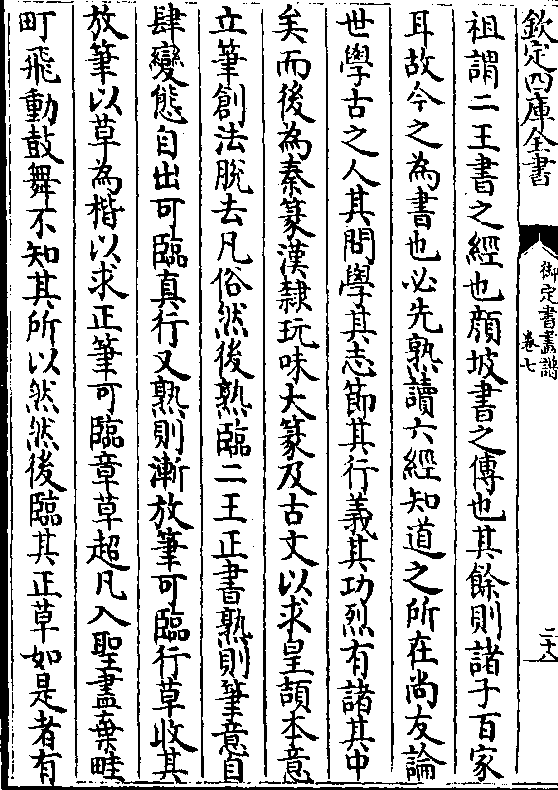 欽定四庫全書
御定書畫譜
卷七
二十八
祖謂二王書之經也顔坡書之傳也其餘則諸子百家
耳故今之為書也必先熟讀六經知道之所在尚友論
世學古之人其問學其志節其行義其功烈有諸其中
矣而後為秦篆漢隸玩味大篆及古文以求皇頡本意
立筆創法脫去凡俗然後熟臨二王正書熟則筆意自
肆變態自出可臨真行又熟則漸放筆可臨行草收其
放筆以草為楷以求正筆可臨章草超凡入聖盡棄畦
町飛動鼓舞不知其所以然然後臨其正草如是者有